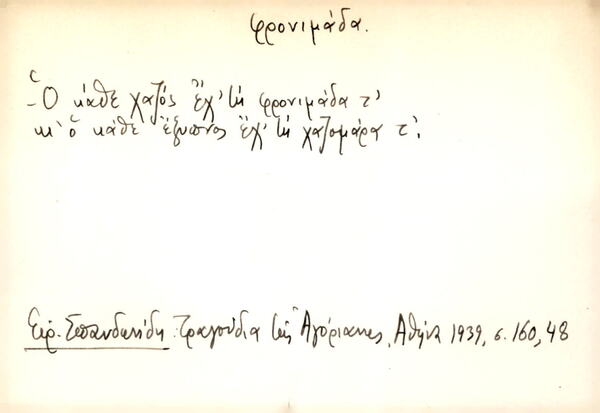 φρονιμάδα.
- Ὁ κάθε χαζός ἔχ' τη φρονιμάδα τ'
κι ὁ κάθε ἔξυπνος ἔχ' τη χαζομάρα τ'.
Ειρ. Σπανδωνίδη: Τραγούδια της Αγόριανης, Αθήνα 1939, σ. 160, 48